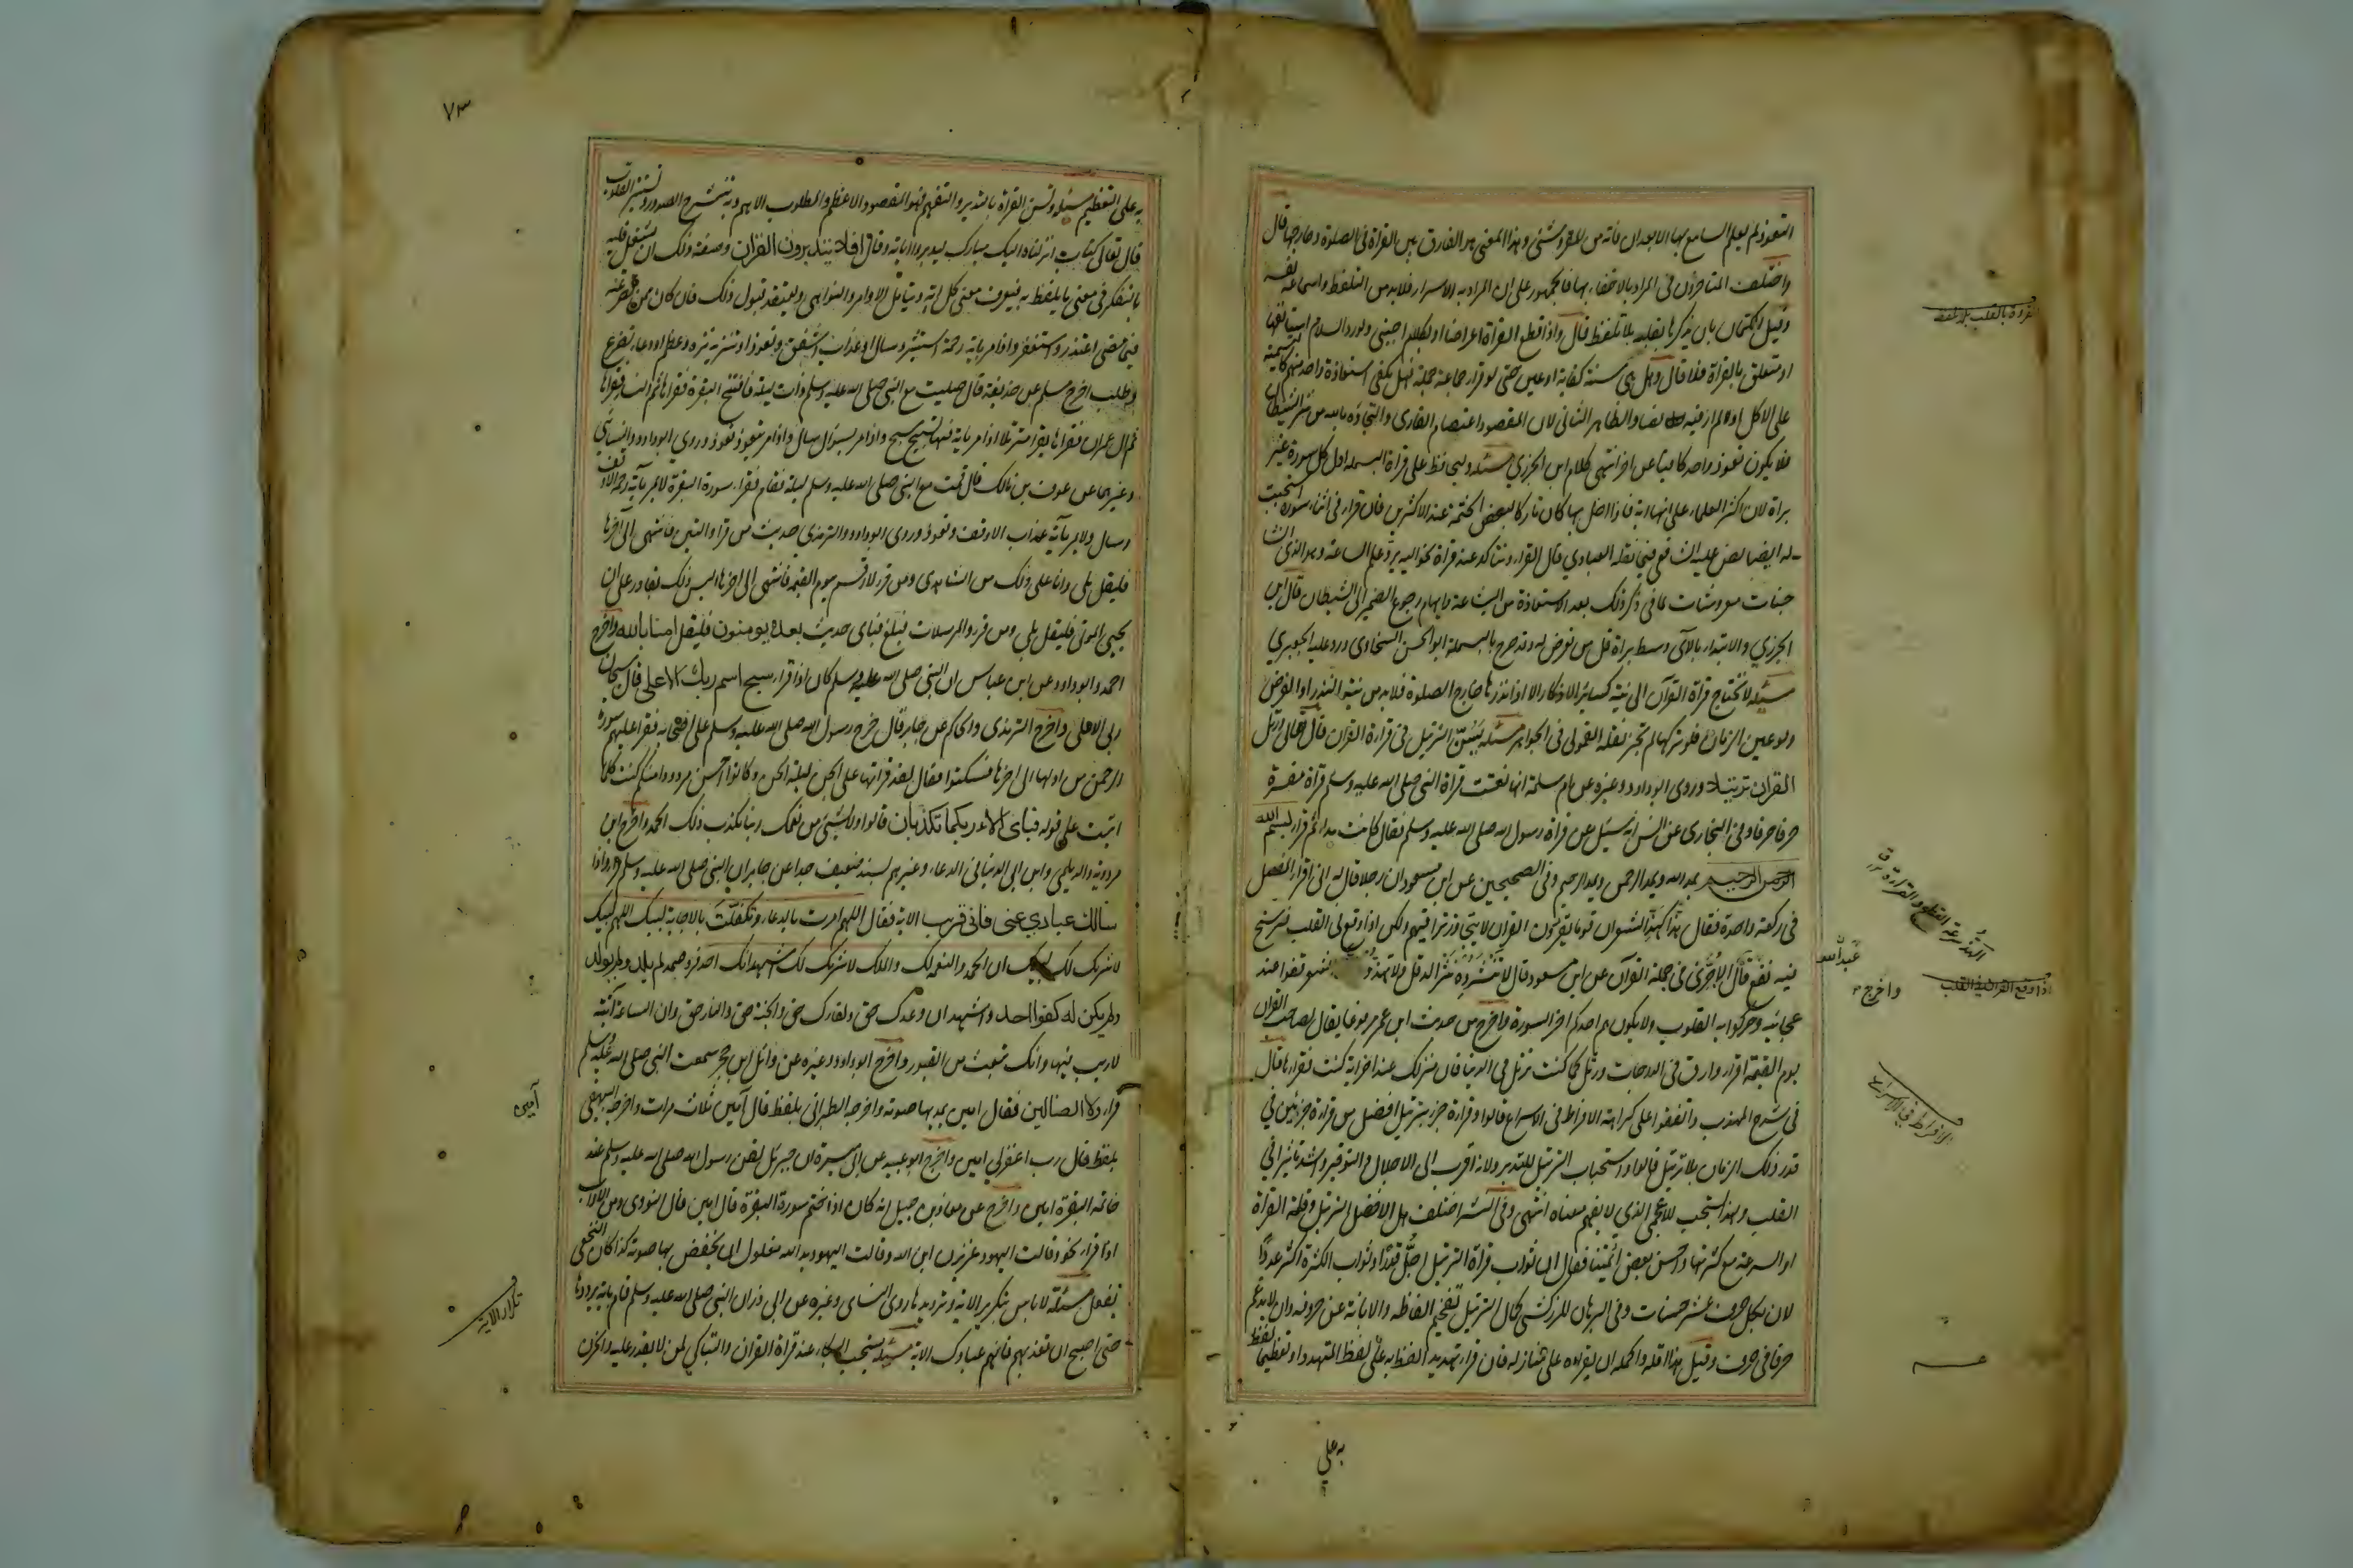 التعوذ لم يعلم السامع بها الا بعد ان فاته من المقروء شئ وهذا المعنى هو الفارق بين القراة في الصلوة وخارجها قال
واختلف المتاخرون في المراد بالاخفاء بها فالجمهور على ان المراد به الاسرار فلا بد من التلفظ واسماع نفسه
وقيل الكتمان بان يذكرها بقلبه بلا تلفظ قال واذا قطع القراة اعراضا او بكلام اجنبي ولو رد السلام استانفها
او متعلق بالقراة فلا قال وهل هي سنة كفاية او عين حتى لو قرا جماعة جملة فهل يكفي استعاذة واحد منهم كالتسمية
على الاكل او لا لم ار فيه نصا والظاهر الثاني لان المقصود اعتصام القارى والتجاؤه بالله من شر الشيطان
فلا يكون تعوذ واحد كافيا عن اخر انتهى كلام ابن الجزري مسئلة وليحافظ على قراة البسملة اول كل سورة غير
براة لان اكثر العلماء على انها اية فاذا اخل بها كان تاركا لبعض الختمة عند الاكثرين فان قرا في اثناء سورة استحبت
له ايضا نص عليه الشافعي فيما نقله العبادي قال القراء ويتاكد عند قراة نحو اليه يرد علم الساعة وهو الذي انشا
جنات معروشات لما في ذكر ذلك بعد الاستعاذة من البشاعة وايهام رجوع الضمير الى الشيطان قال ابن
الجزري والابتداء بالآي وسط براة قل من تعرض له وقد صرح بالبسملة ابو الحسن السخاوي ورد عليه الجعبري
مسئلة لا تحتاج قراة القرآن الى نية كسائر الاذكار الا اذا نذرها خارج الصلوة فلا بد من نية النذر او الفرض
ولو عين الزمان فلو تركها لم تجز نقله القمولي في الجواهر مسئلة يسن الترتيل في قراءة القران قال تعالى ورتل
القران ترتيلا وروى ابو داود وغيره عن ام سلمة انها نعتت قراة النبي صلى الله عليه وسلم قراة مفسرة
حرفا حرفا وفي البخاري عن انس انه سئل عن قراة رسول الله صلى الله عليه وسلم فقال كانت مدا ثم قرا بسم الله
الرحمن الرحيم يمد الله ويمد الرحمن ويمد الرحيم وفي الصحيحين عن ابن مسعود ان رجلا قال له اني اقرا المفصل
في ركعة واحدة فقال هذا كهذ الشعر ان قوما يقرؤن القران لا يتجاوز تراقيهم ولكن اذا وقع في القلب فرسخ
فيه نفع قال الآجري في جملة القرآن عن ابن مسعود قال لا تنثروه نثر الدقل ولا تهذوه الشعر قفوا عند
عجائبه وحركوا به القلوب ولا يكون هم احدكم اخر السورة واخرج من حديث ابن عمر مرفوعا يقال لصاحب القران
يوم القيمة اقرا وارق في الدرجات ورتل كما كنت ترتل في الدنيا فان منزلك عند اخر اية كنت تقراها قال
في شرح المهذب واتفقوا على كراهة الافراط في الاسراع قالوا وقراءة جزء بترتيل افضل من قراءة جزئين في
قدر ذلك الزمان بلا ترتيل قالوا واستحباب الترتيل للتدبر ولانه اقرب الى الاجلال والتوقير واشد تاثيرا في
القلب ولهذا يستحب للاعجمي الذي لا يفهم معناه انتهى وفي النشر اختلف هل الافضل الترتيل وقلة القراة
او السرعة مع كثرتها واحسن بعض ائمتنا فقال ان ثواب قراة الترتيل اجل قدرا وثواب الكثرة اكثر عددا
لان بكل حرف عشر حسنات وفي البرهان للزركشي كمال الترتيل تفخيم الفاظه والابانة عن حروفه وان لا يدغم
حرفا في حرف وقيل هذا اقله واكمله ان يقراه على منازله فان قرا تهديدا لفظ به على لفظ المتهدد او تعظيما لفظ
به على
القراءة بالقلب بلا تلفظ
الهذ سرعة القطع والقراءة
عبد الله
واخرج
اذا وقع القران في القلب
الافراط في الاسراع
٧٣
به على التعظيم مسئلة وتسن القراة بالتدبر والتفهم فهو المقصود الاعظم والمطلوب الاهم وبه تنشرح الصدور وتستنير القلوب
قال تعالى كتاب انزلناه اليك مبارك ليدبروا اياته وقال افلا يتدبرون القران وصفة ذلك ان يشغل قلبه
بالتفكر في معنى ما يلفظ به فيعرف معنى كل اية ويتامل الاوامر والنواهي ويعتقد قبول ذلك فان كان مما قصر عنه
فيما مضى اعتذر واستغفر واذا مر باية رحمة استبشر وسال او عذاب اشفق وتعوذ او تنزيه نزه وعظم او دعاء تضرع
وطلب اخرج مسلم عن حذيفة قال صليت مع النبي صلى الله عليه وسلم ذات ليلة فافتتح البقرة فقراها ثم النساء فقراها
ثم ال عمران فقراها يقرا مترسلا اذا مر باية فيها تسبيح سبح واذا مر بسؤال سال واذا مر بتعوذ تعوذ وروى ابو داود والنسائي
وغيرهما عن عوف بن مالك قال قمت مع النبي صلى الله عليه وسلم ليلة فقام فقرا سورة البقرة لا يمر بآية رحمة الا وقف
وسال ولا يمر بآية عذاب الا وقف وتعوذ وروى ابو داود والترمذي حديث من قرا والتين فانتهى الى آخرها
فليقل بلى وانا على ذلك من الشاهدين ومن قرا لا اقسم بيوم القيمة فانتهى الى اخرها اليس ذلك بقادر على ان
يحيي الموتى فليقل بلى ومن قرا والمرسلات فبلغ فباى حديث بعده يومنون فليقل امنا بالله واخرج
احمد وابو داود عن ابن عباس ان النبي صلى الله عليه وسلم كان اذا قرا سبح اسم ربك الاعلى قال سبحان
ربي الاعلى واخرج الترمذي والحاكم عن جابر قال خرج رسول الله صلى الله عليه وسلم على اصحابه فقرا عليهم سورة
الرحمن من اولها الى اخرها فسكتوا فقال لقد قراتها على الجن ليلة الجن وكانوا احسن مردودا منكم كنت كلما
اتيت على قوله فباى الاء ربكما تكذبان قالوا ولا بشئ من نعمك ربنا نكذب ذلك الحمد واخرج ابن
مردويه والديلمي وابن ابي الدنيا في الدعاء وغيرهم بسند ضعيف جدا عن جابر ان النبي صلى الله عليه وسلم قرا واذا
سالك عبادي عني فاني قريب الاية فقال اللهم امرت بالدعاء وتكفلت بالاجابة لبيك اللهم لبيك
لا شريك لك لبيك ان الحمد والنعمة لك والملك لا شريك لك اشهد انك احد فرد صمد لم يلد ولم يولد
ولم يكن له كفوا احد واشهد ان وعدك حق ولقاءك حق والجنة حق والنار حق وان الساعة آتية
لا ريب فيها وانك تبعث من في القبور واخرج ابو داود وغيره عن وائل ابن حجر سمعت النبي صلى الله عليه وسلم
قرا ولا الضالين فقال امين يمد بها صوته واخرجه الطبراني بلفظ قال آمين ثلاث مرات واخرجه البيهقي
بلفظ قال رب اغفر لي امين واخرج ابو عبيد عن ابي ميسرة ان جبريل لقن رسول الله صلى الله عليه وسلم عند
خاتمة البقرة امين واخرج عن معاذ بن جبل انه كان اذا ختم سورة البقرة قال امين قال النووي ومن الآداب
اذا قرا نحو وقالت اليهود عزير ابن الله وقالت اليهود يد الله مغلولة ان يخفض بها صوته كذا كان النخعي
يفعل مسئلة لا باس بتكرير الاية وترديدها روى النسائي وغيره عن ابي ذر ان النبي صلى الله عليه وسلم قام باية يرددها
حتى اصبح ان تعذبهم فانهم عبادك الاية مسئلة يستحب البكاء عند قراة القران والتباكي لمن لا يقدر عليه والحزن
آمين
تكرار الاية